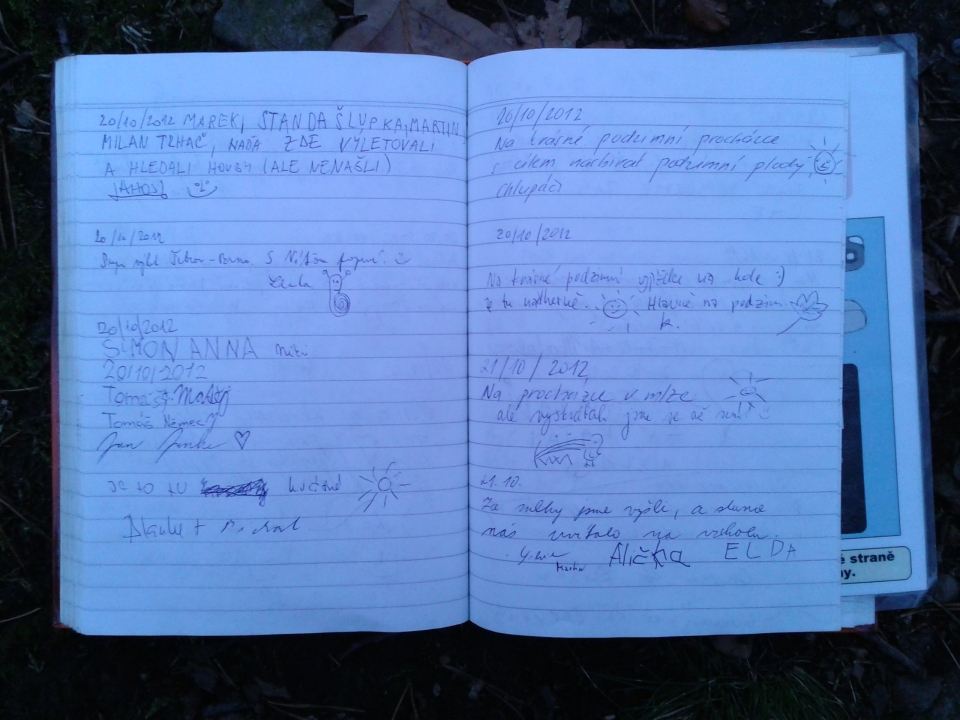 20/10/2012 MAREK, STANDA ŠLUPKA, MARTIN,
MILAN TRHAČ, NAĎA ZDE VÝLETOVALI
A HLEDALI HOUBY (ALE NENAŠLI)
AHOJ
20/10/2012
S
20/10/2012
ŠIMON ANNA
20/10/2012
Tomáš Matěj
Tomáš Němec
Jan
JE TO TU
20/10/2012
Na krásné podzimní procházce
s cílem nasbírat podzimní plody,
chlupáči
20/10/2012
Na krásné podzimní vyjížďce na kole :)
Je tu nádherně. Hlavně na podzim.
K.
21/10/2012
Na procházce v mlze
ale vyškrábali jsme se až sem!
21.10.
Za mlhy jme vyšli, a slunce
nás uvítalo na vrcholu.
Alička ELDA
é straně
ny.